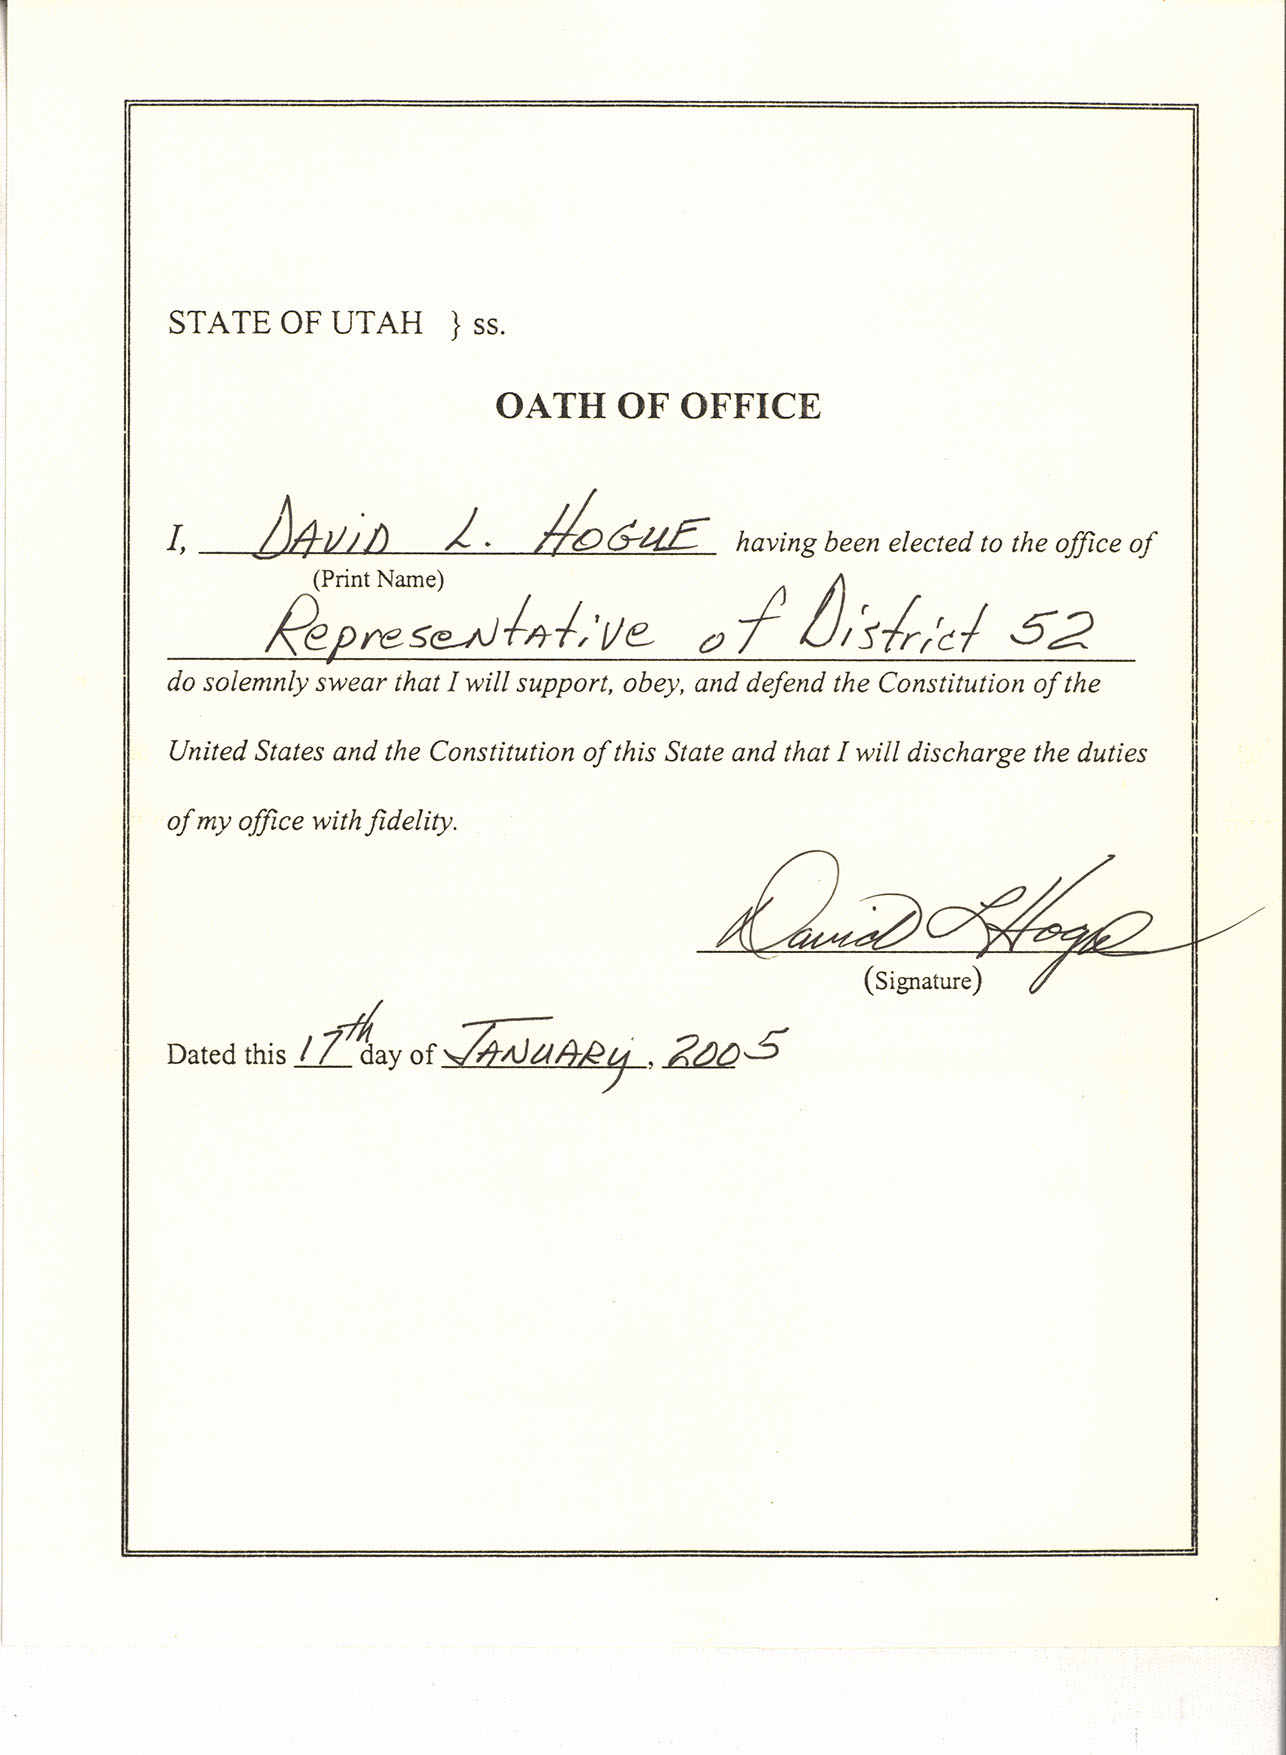 STATE OF UTAH } ss.
OATH OF OFFICE
I, DAVID L. HOGUE having been elected to the office of
(Print Name)
Representative of District 52
do solemnly swear that I will support, obey, and defend the Constitution of the
United States and the Constitution of this State and that I will discharge the duties
of my office with fidelity.
David L Hogue
(Signature)
Dated this 17th day of JANUARY, 2005